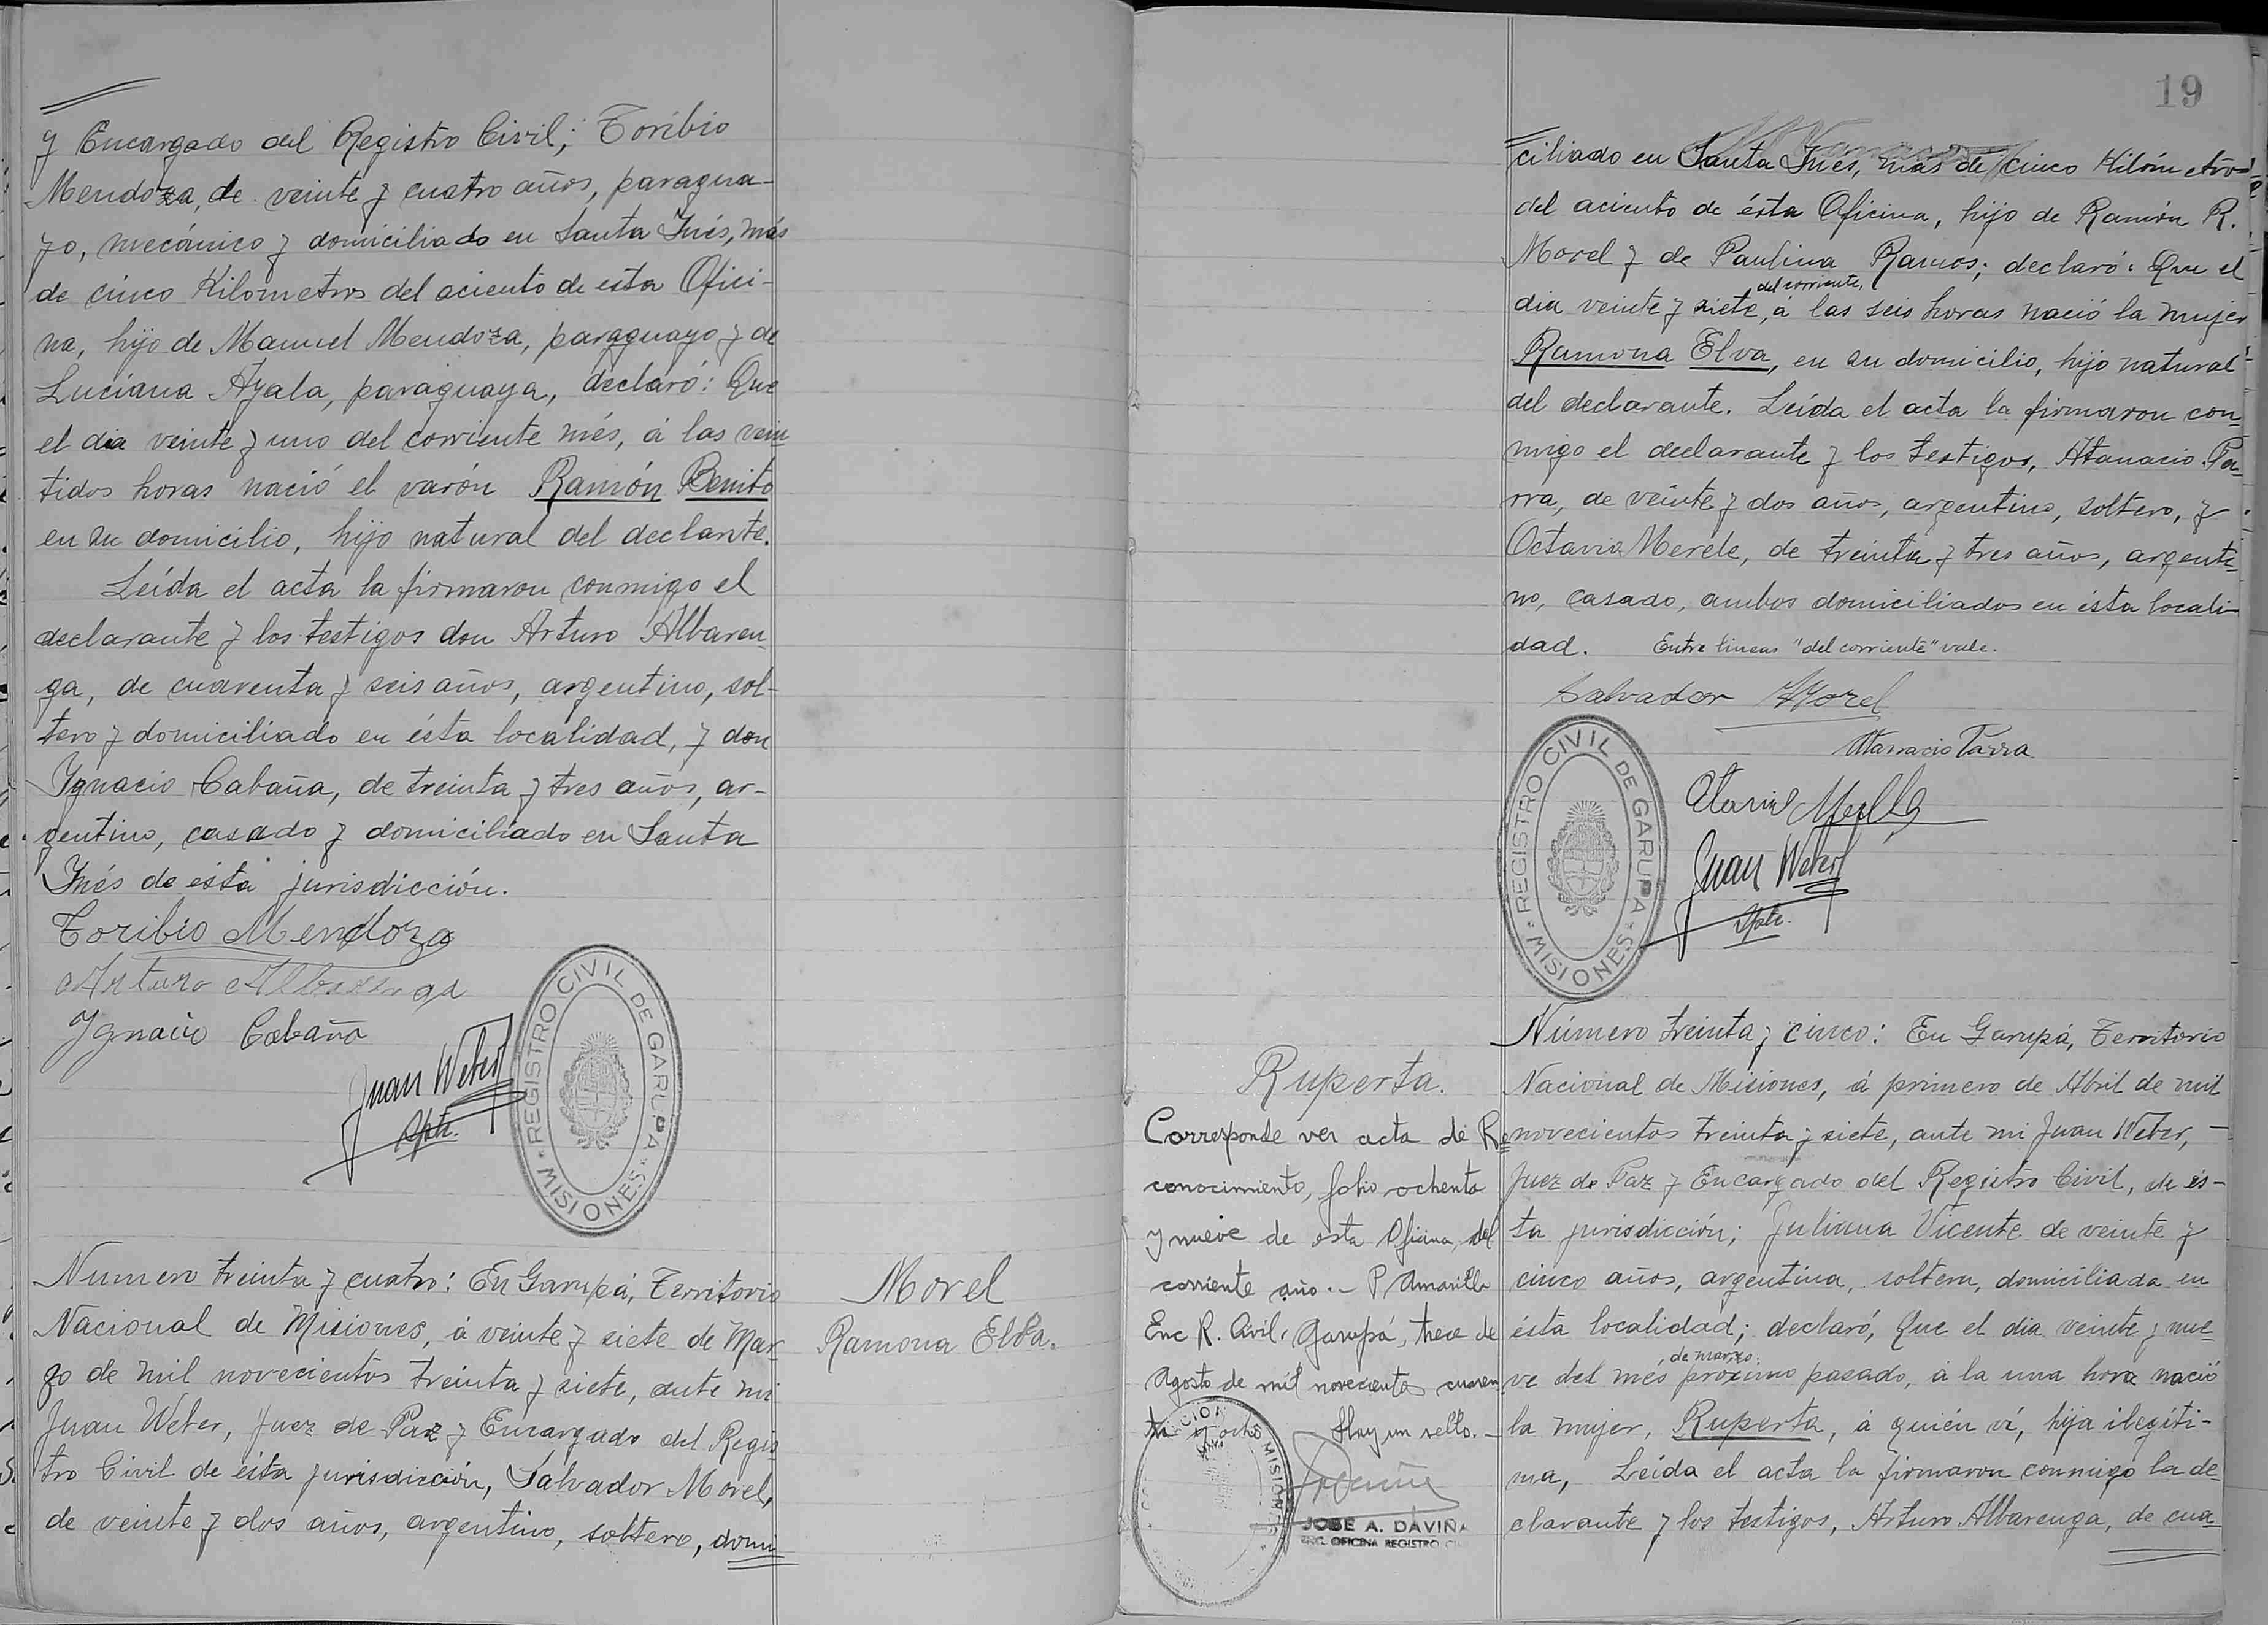 y Encargado del Registro Civil; Toribio
Mendoza, de veinte y cuatro años, paragua-
yo, mecánico y domiciliado en Santa Inés, más
de cinco Kilometros del aciento de esta Ofici-
na, hijo de Manuel Mendoza, paraguayo y de
Luciana Ayala, paraguaya, declaró: Que
el dia veinte y uno del corriente més, á las vein
tidos horas nació el varón Ramón Benito
en su domicilio, hijo natural del declante.
Leída el acta la firmaron conmigo el
declarante y los testigos don Arturo Albaren
ga, de cuarenta y seis años, argentino, sol-
tero y domiciliado en ésta localidad, y don
Ygnacio Cabaña, de treinta y tres años, ar-
gentino, casado y domiciliado en Santa
Inés de ésta jurisdicción.
Toribio Mendoza
Arturo Albarenga
Ygnacio Cabaña
Juan Weber
REGISTRO CIVIL DE GARUPA
MISIONES
Numero treinta y cuatro: En Garupá, Territorio
Nacional de Misiones, á veinte y siete de Mar-
zo de mil novecientos treinta y siete, ante mi
Juan Weber, Juez de Paz y Encargado del Regis
tro Civil de ésta jurisdicción, Salvador Morel,
de veinte y dos años, argentino, soltero, domi
Morel
Ramona Elba.
19
ciliado en Santa Inés, más de cinco Kilómetros
del aciento de ésta Oficina, hijo de Ramón R.
Morel y de Paulina Ramos; declaró: Que el
del corriente,
dia veinte y siete, á las seis horas nació la mujer
Ramona Elva, en su domicilio, hijo natural
del declarante. Leída el acta la firmaron con-
migo el declarante y los testigos, Atanacio Pa-
rra, de veinte y dos años, argentino, soltero, y
Octavio Merele, de treinta y tres años, argenti-
no, casado, ambos domiciliados en ésta locali-
dad. Entre lineas "del corriente" vale.
Salvador Morel
Atanacio Parra
Juan Weber
REGISTRO CIVIL DE GARUPA
MISIONES
Ruperta.
Corresponde ver acta de Re
conocimiento, folio ochenta
y nueve de esta Oficina, del
corriente año.- P. Amarilla
Enc R. Civil. Garupá, trece de
Agosto de mil novecientos cuaren
ta y ocho Hay un sello.-
MISIONES
JOSE A. DAVIÑA
ENC. OFICINA REGISTRO
Número treinta y cinco: En Garupá, Territorio
Nacional de Misiones, á primero de Abril de mil
novecientos treinta y siete, ante mi Juan Weber,-
Juez de Paz y Encargado del Registro Civil, de és-
ta jurisdicción; Juliana Vicente de veinte y
cinco años, argentina, soltera, domiciliada en
ésta localidad; declaró, Que el dia veinte y nue-
de marzo
ve del més próximo pasado, á la una hora nació
la mujer, Ruperta, á quién ví, hija ilegíti-
ma, Leída el acta la firmaron conmigo la de-
clarante y los testigos, Arturo Albarenga, de cua